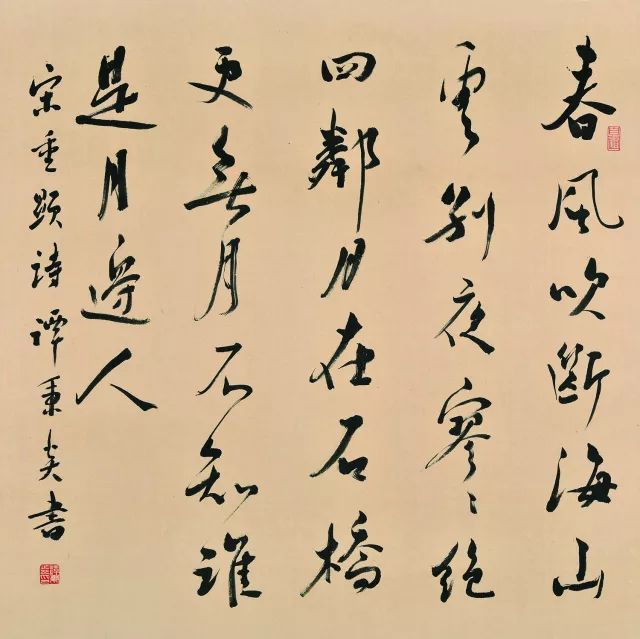 春風吹斷海山
雲別夜寥〻絕
四鄰月在石橋
更無月不知誰
是月邊人
宋重顯詩譚秉炎書